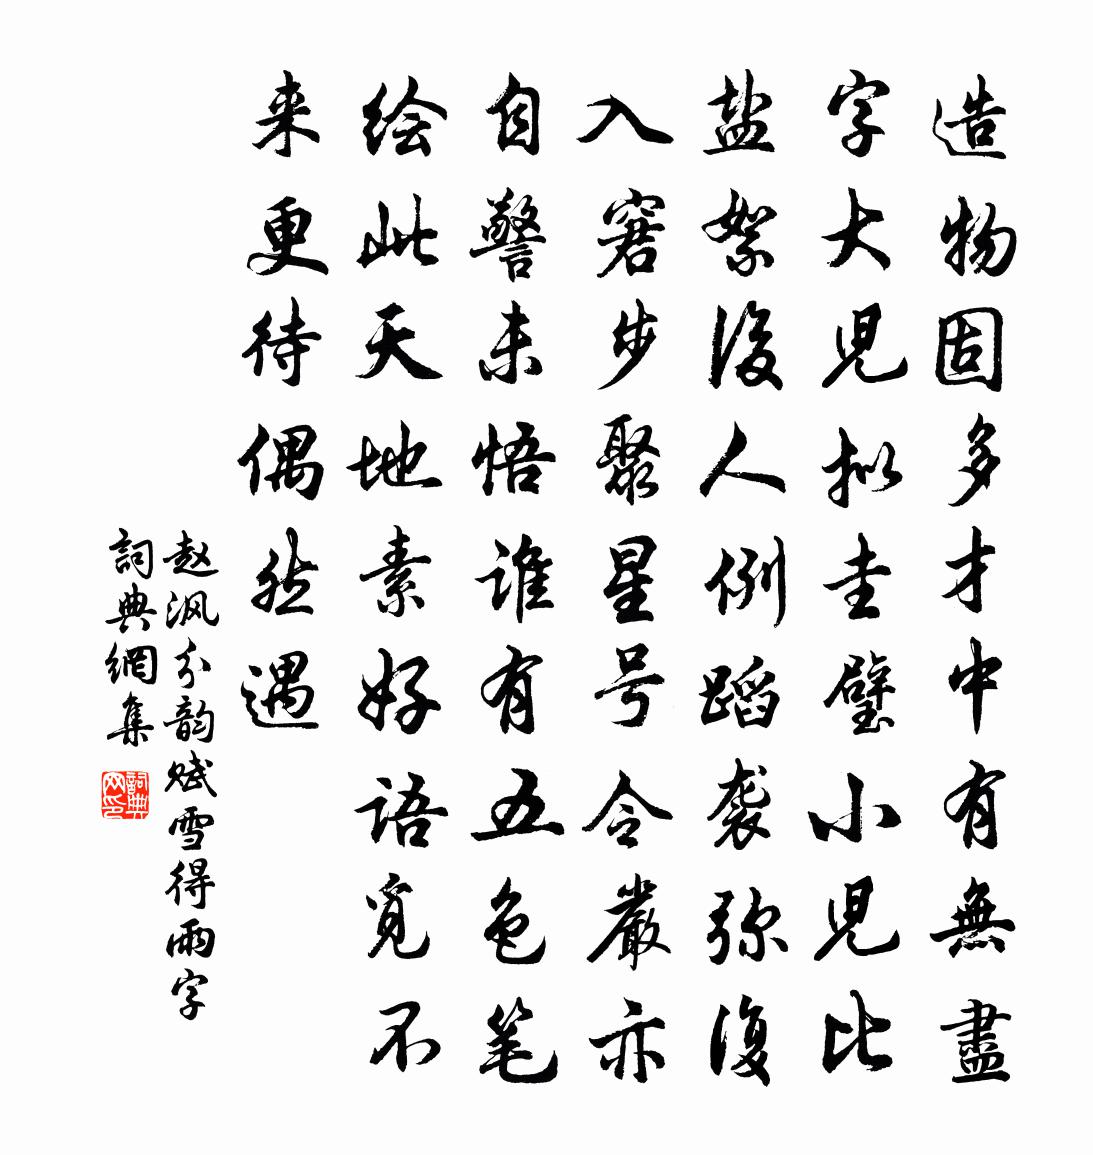 造物固多才中有無盡
字大児拟圭璧小児比
盐絮後人例蹈袭弥復
入窘步聚星号令嚴亦
自警未悟谁有五色笔
绘此天地素好语觅不
来更待偶然遇
赵沨分韵赋雪得雨字
詞典網集
詞典网印